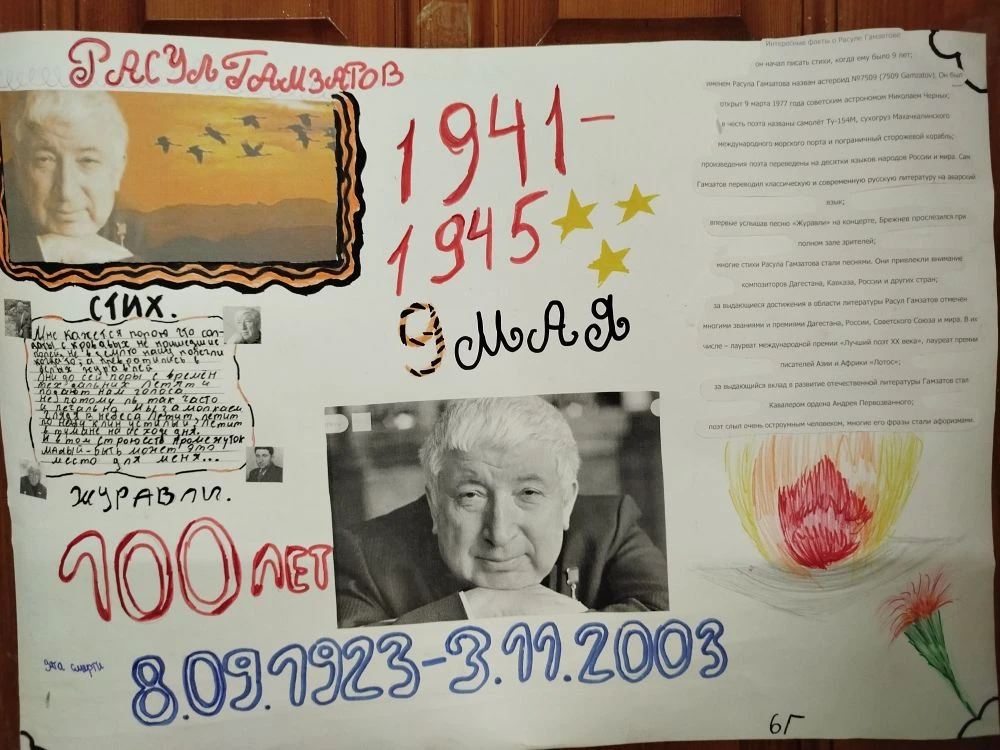 РАСУЛ ГАМЗАТОВ
1941-
1945
9 МАЯ
СТИХ.
Мне кажется порою что сол-
даты с кровавых не пришедшие
полей, не в землю нашу полегли
когда то, а превратились в
белых журавлей
Они до сей поры с времен
тех дальних Летят и
подают нам голоса
не потому ль так часто
и печально мы замолкаем
глядя в небеса Летит, летит
по небу клин усталый Летит
в тумане на исходе дня.
И в том строю есть промежуток
малый-быть может это
место для меня...
ЖУРАВЛИ.
100 ЛЕТ
дата смерти
8.09.1923-3.11.2003
Интересные факты о Расуле Гамзатове
он начал писать стихи, когда ему было 9 лет;
именем Расула Гамзатова назван астероид №7509 (7509 Gamzatov). Он был
открыт 9 марта 1977 года советским астрономом Николаем Черных;
в честь поэта названы самолёт Ту-154М, сухогруз Махачкалинского
международного морского порта и пограничный сторожевой корабль;
произведения поэта переведены на десятки языков народов России и мира. Сам
Гамзатов переводил классическую и современную русскую литературу на аварский
язык;
впервые услышав песню «Журавли» на концерте, Брежнев прослезился при
полном зале зрителей;
многие стихи Расула Гамзатова стали песнями. Они привлекли внимание
композиторов Дагестана, Кавказа, России и других стран;
за выдающиеся достижения в области литературы Расул Гамзатов отмечен
многими званиями и премиями Дагестана, России, Советского Союза и мира. В их
числе – лауреат международной премии «Лучший поэт XX века», лауреат премии
писателей Азии и Африки «Лотос»;
за выдающийся вклад в развитие отечественной литературы Гамзатов стал
Кавалером ордена Андрея Первозванного;
поэт слыл очень остроумным человеком, многие его фразы стали афоризмами.
6Г